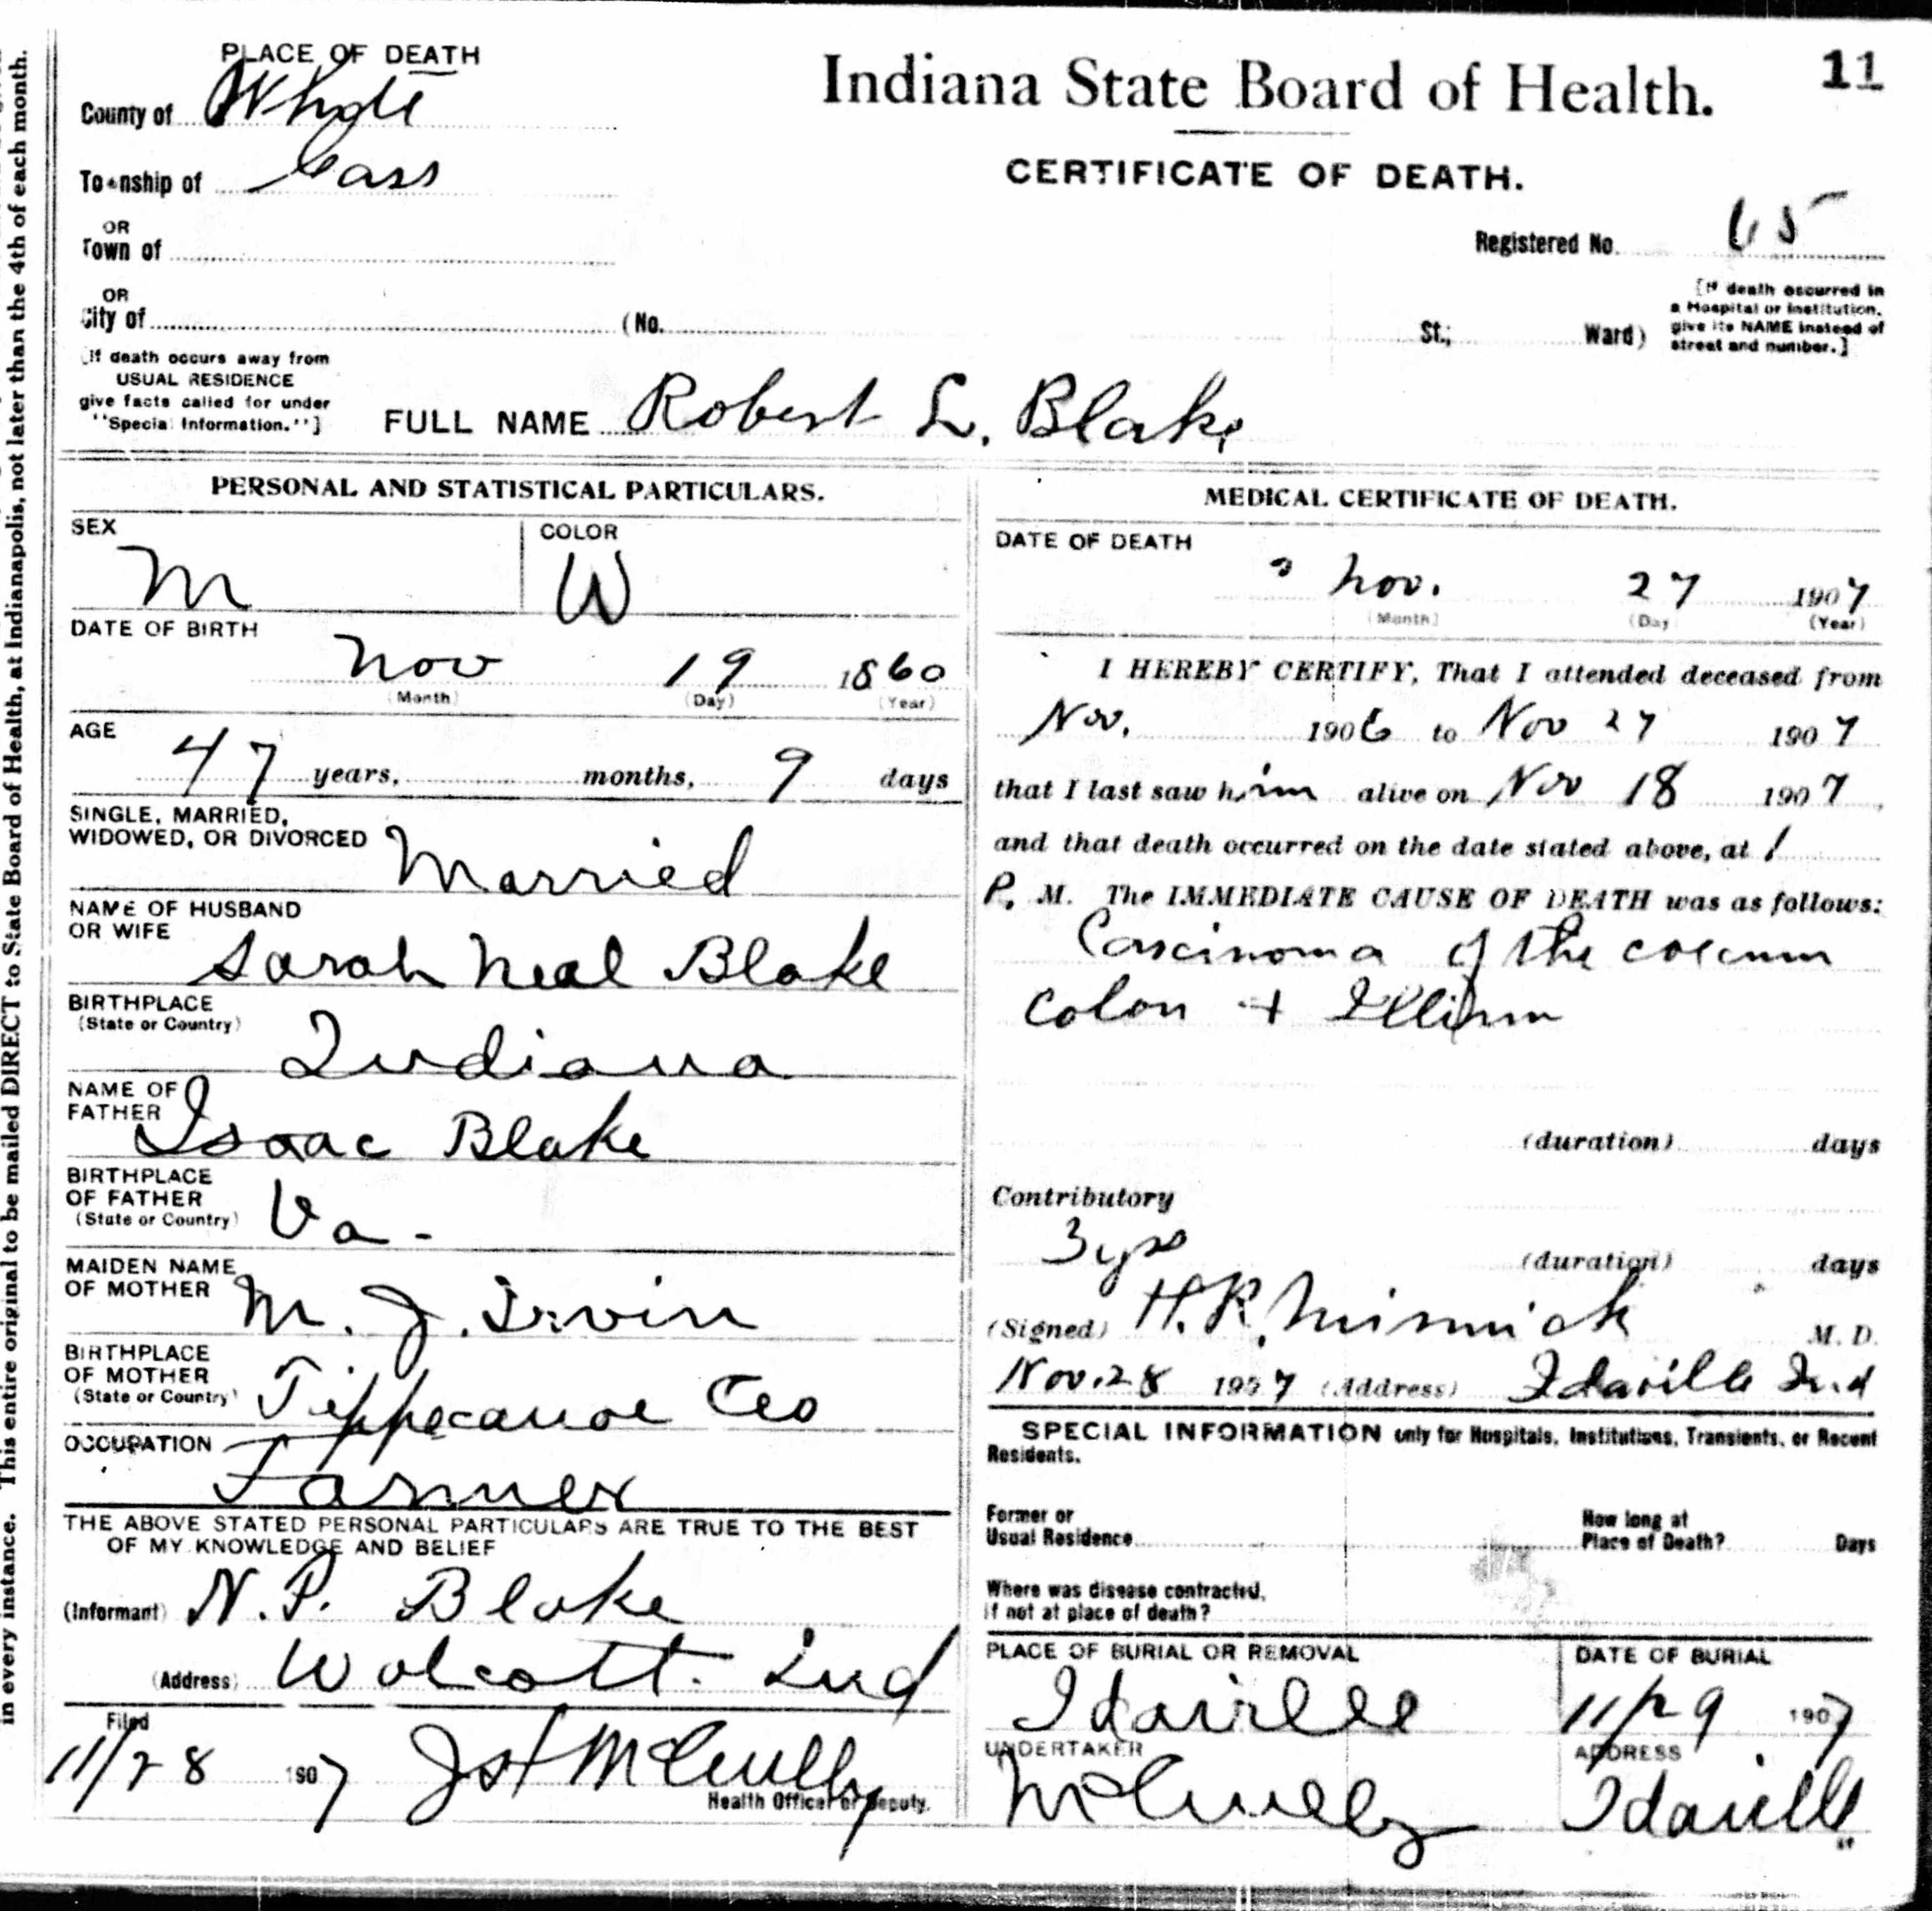 in every instance. This entire original to be mailed DIRECT to State Board of Health, at Indianapolis, not later than the 4th of each month.
11
PLACE OF DEATH
Indiana State Board of Health.
County of White
CERTIFICATE OF DEATH.
Township of Cass
OR
Town of
Registered No. 65
OR
City of (No. St.; Ward)
[If death occurred in
a Hospital or institution,
give its NAME instead of
street and number.]
[If death occurs away from
USUAL RESIDENCE
give facts called for under
"Special Information."]
FULL NAME Robert L. Blake
PERSONAL AND STATISTICAL PARTICULARS.
SEX
M
COLOR
W
DATE OF BIRTH
Nov 19 1860
(Month) (Day) (Year)
AGE
47 years, months, 9 days
SINGLE, MARRIED,
WIDOWED, OR DIVORCED Married
NAME OF HUSBAND
OR WIFE
Sarah Neal Blake
BIRTHPLACE
(State or Country)
Indiana
NAME OF
FATHER
Isaac Blake
BIRTHPLACE
OF FATHER
(State or Country) Va.
MAIDEN NAME
OF MOTHER M. J. Irvin
BIRTHPLACE
OF MOTHER
(State or Country) Tippecanoe Co
OCCUPATION
Farmer
THE ABOVE STATED PERSONAL PARTICULARS ARE TRUE TO THE BEST
OF MY KNOWLEDGE AND BELIEF
(Informant) N. P. Blake
(Address) Wolcott. Ind
Filed
11/28 1907 Jos McCully
Health Officer or Deputy.
MEDICAL CERTIFICATE OF DEATH.
DATE OF DEATH
Nov. 27 1907
(Month) (Day) (Year)
I HEREBY CERTIFY, That I attended deceased from
Nov. 1906 to Nov 27 1907
that I last saw him alive on Nov 18 1907,
and that death occurred on the date stated above, at 1
P. M. The IMMEDIATE CAUSE OF DEATH was as follows:
Carcinoma of the coecum
colon + Illium
(duration) days
Contributory
3 yrs (duration) days
(Signed) H. R. Minnick M. D.
Nov. 28 1907 (Address) Idaville Ind
SPECIAL INFORMATION only for Hospitals, Institutions, Transients, or Recent
Residents.
Former or
Usual Residence
How long at
Place of Death? Days
Where was disease contracted,
if not at place of death?
PLACE OF BURIAL OR REMOVAL
Idaville
DATE OF BURIAL
11/29 1907
UNDERTAKER
McCully
ADDRESS
Idaville